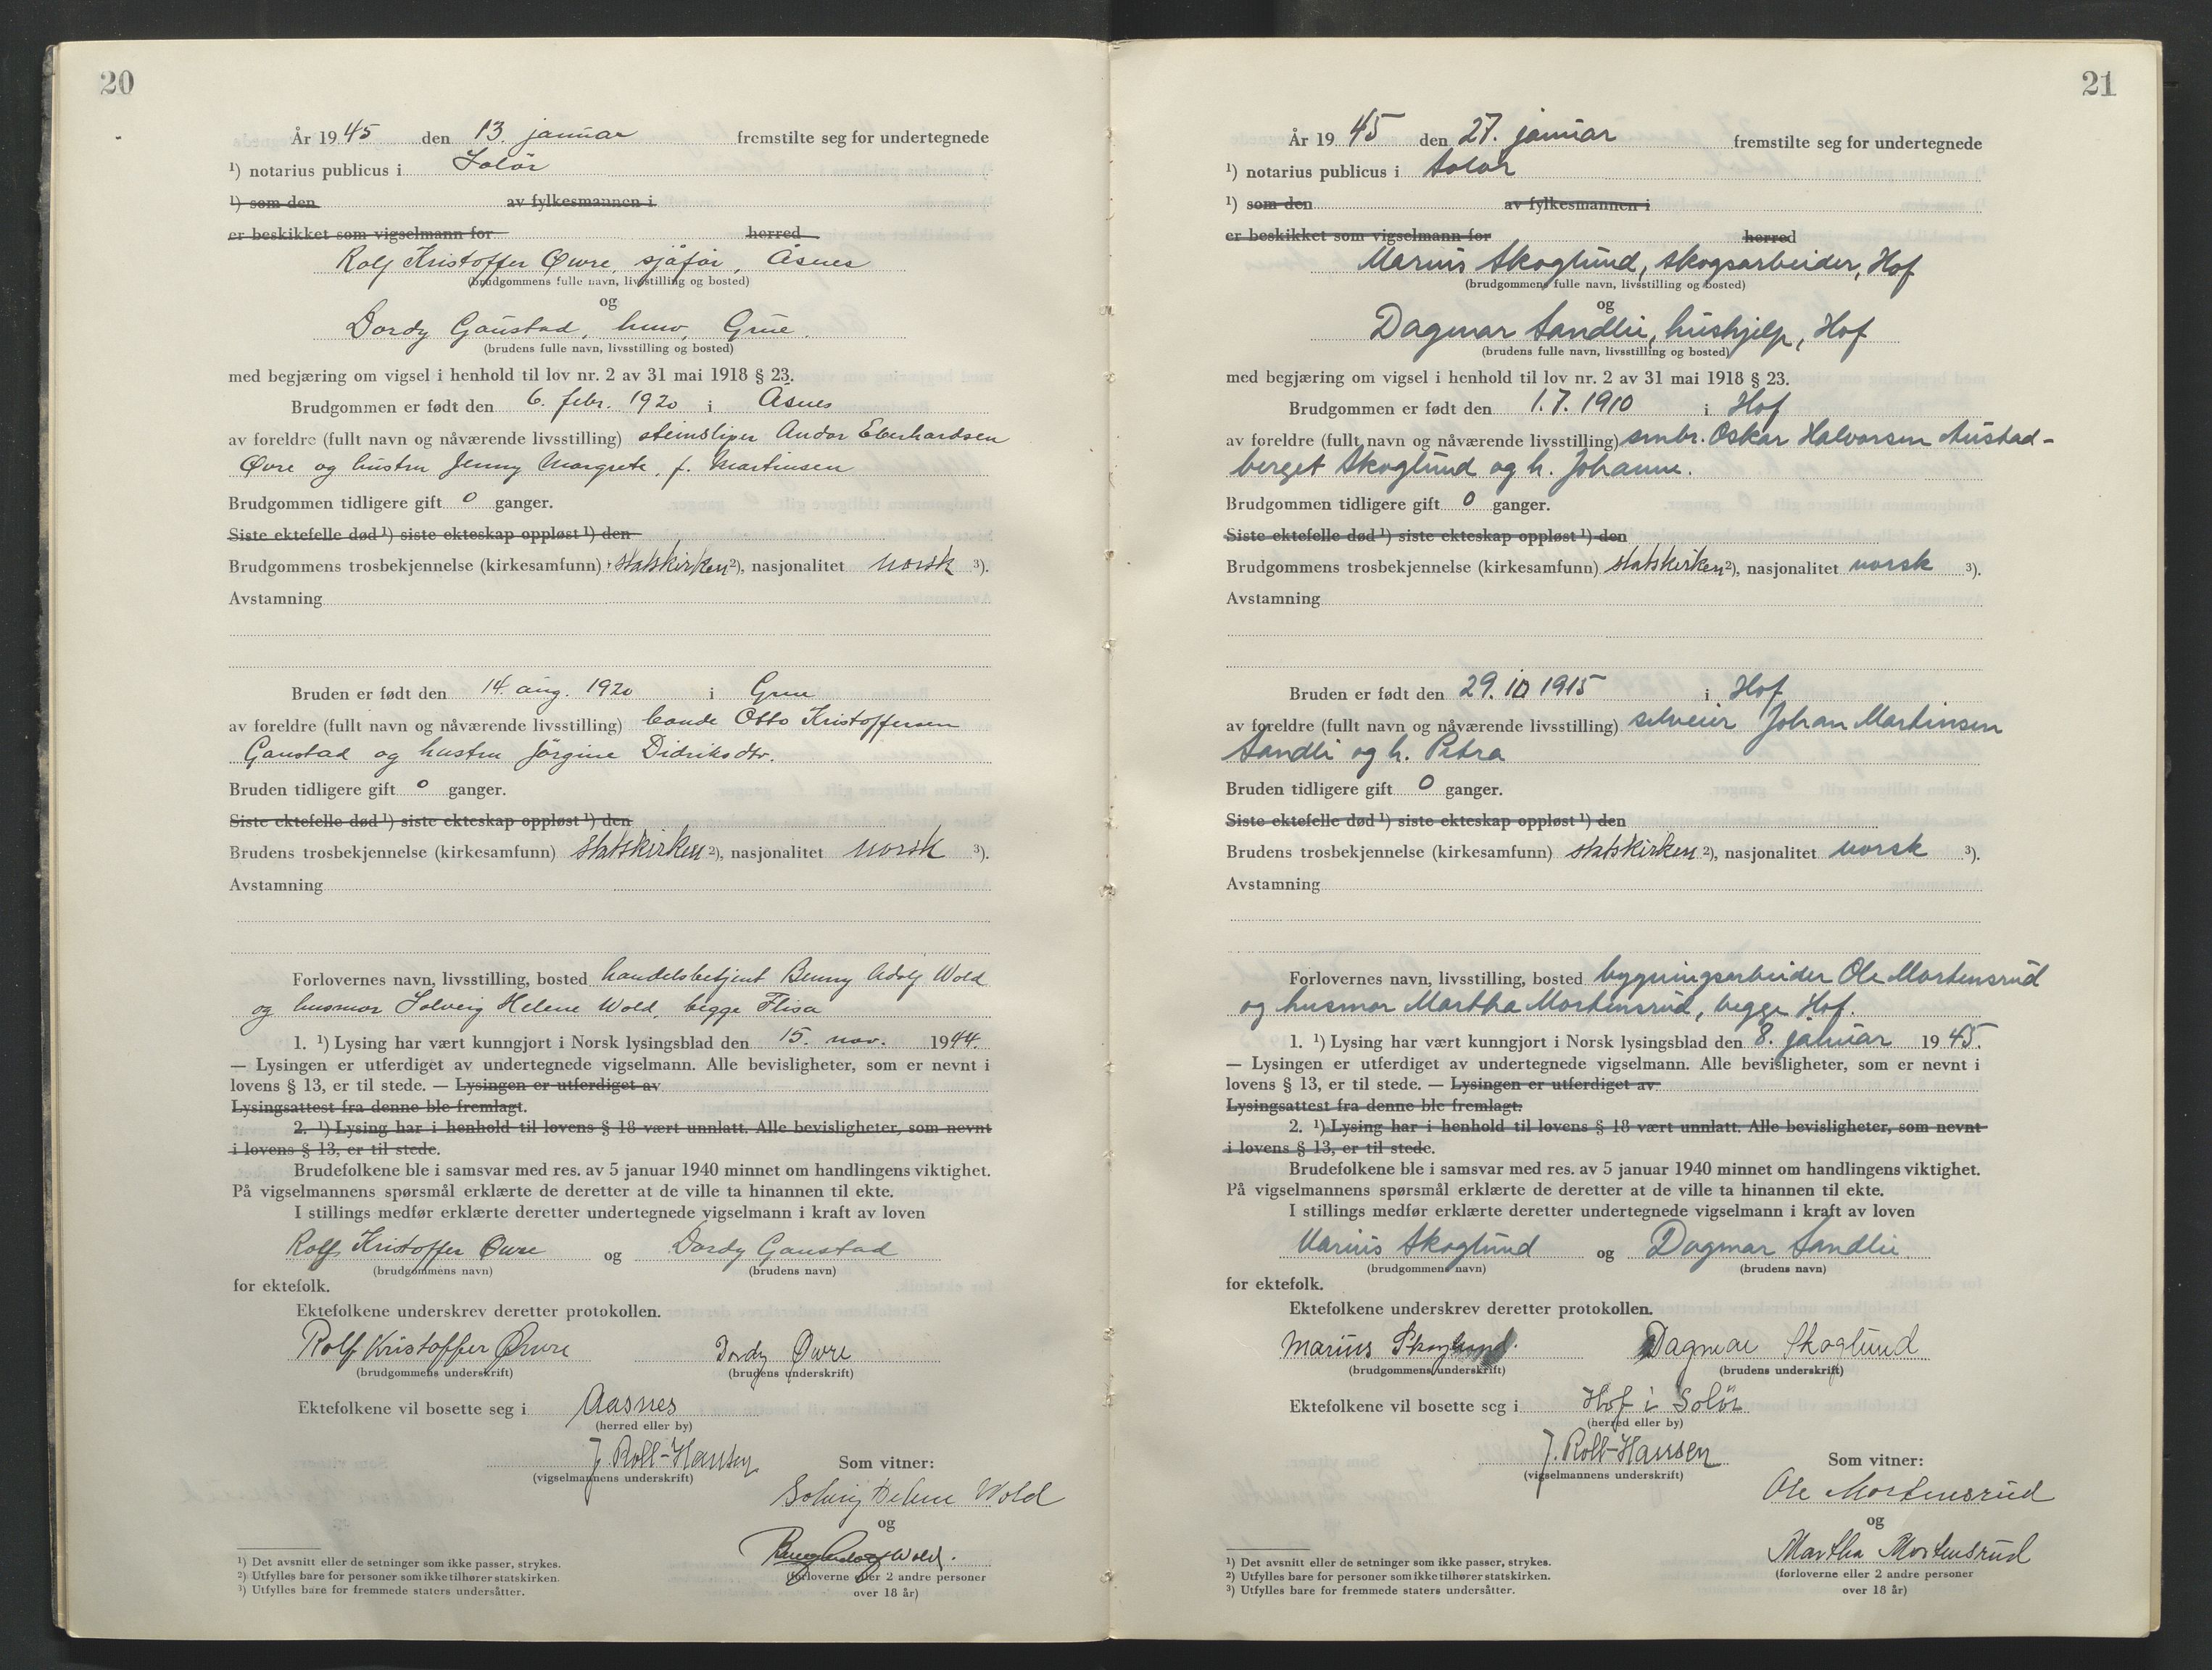 20
År 1945 den 13. januar fremstilte seg for undertegnede
¹) notarius publicus i Solör
¹) som den av fylkesmannen i
er beskikket som vigselmann for herred
Rolf Kristoffer Øvre, sjåför, Åsnes
(brudgommens fulle navn, livsstilling og bosted)
og
Dordy Gaustad, hmv, Grue.
(brudens fulle navn, livsstilling og bosted)
med begjæring om vigsel i henhold til lov nr. 2 av 31 mai 1918 § 23.
Brudgommen er født den 6. febr. 1920 i Åsnes
av foreldre (fullt navn og nåværende livsstilling) steinsliper Andor Eberhardsen
Øvre og hustru Jenny Margrete, f. Martinsen
Brudgommen tidligere gift 0 ganger.
Siste ektefelle død ¹) siste ekteskap oppløst ¹) den
Brudgommens trosbekjennelse (kirkesamfunn) statskirken ²), nasjonalitet norsk ³).
Avstamning
Bruden er født den 14. aug. 1920 i Grue
av foreldre (fullt navn og nåværende livsstilling) bonde Otto Kristoffersen
Gaustad og hustru Jörgine Didriksdtr.
Bruden tidligere gift 0 ganger.
Siste ektefelle død ¹) siste ekteskap oppløst ¹) den
Brudens trosbekjennelse (kirkesamfunn) statskirken ²), nasjonalitet norsk ³).
Avstamning
Forlovernes navn, livsstilling, bosted handelsbetjent Benny Adolf Wold
og husmor Solveig Helene Wold, begge Flisa
1. ¹) Lysing har vært kunngjort i Norsk lysingsblad den 15. nov. 1944.
— Lysingen er utferdiget av undertegnede vigselmann. Alle bevisligheter, som er nevnt i
lovens § 13, er til stede. — Lysingen er utferdiget av
Lysingsattest fra denne ble fremlagt.
2. ¹) Lysing har i henhold til lovens § 18 vært unnlatt. Alle bevisligheter, som nevnt
i lovens § 13, er til stede.
Brudefolkene ble i samsvar med res. av 5 januar 1940 minnet om handlingens viktighet.
På vigselmannens spørsmål erklærte de deretter at de ville ta hinannen til ekte.
I stillings medfør erklærte deretter undertegnede vigselmann i kraft av loven
Rolf Kristoffer Øvre og Dordy Gaustad
(brudgommens navn) (brudens navn)
for ektefolk.
Ektefolkene underskrev deretter protokollen.
Rolf Kristoffer Øvre Dordy Øvre
(brudgommens underskrift) (brudens underskrift)
Ektefolkene vil bosette seg i Aasnes
(herred eller by)
J. Roll-Hansen Som vitner:
(vigselmannens underskrift)
Solveig Helene Wold
og
Benny Adolf Wold.
(forloverne eller 2 andre personer
over 18 år)
¹) Det avsnitt eller de setninger som ikke passer, strykes.
²) Utfylles bare for personer som ikke tilhører statskirken.
³) Utfylles bare for fremmede staters undersåtter.
21
År 1945 den 27. januar fremstilte seg for undertegnede
¹) notarius publicus i Solör
¹) som den av fylkesmannen i
er beskikket som vigselmann for herred
Marius Skoglund, skogsarbeider, Hof
(brudgommens fulle navn, livsstilling og bosted)
og
Dagmar Sandlie, hushjelp, Hof
(brudens fulle navn, livsstilling og bosted)
med begjæring om vigsel i henhold til lov nr. 2 av 31 mai 1918 § 23.
Brudgommen er født den 1.7.1910 i Hof
av foreldre (fullt navn og nåværende livsstilling) smbr. Oskar Halvorsen Austad-
berget Skoglund og h. Johanne.
Brudgommen tidligere gift 0 ganger.
Siste ektefelle død ¹) siste ekteskap oppløst ¹) den
Brudgommens trosbekjennelse (kirkesamfunn) statskirken ²), nasjonalitet norsk ³).
Avstamning
Bruden er født den 29.10 1915 i Hof
av foreldre (fullt navn og nåværende livsstilling) selveier Johan Martinsen
Sandli og h. Petra
Bruden tidligere gift 0 ganger.
Siste ektefelle død ¹) siste ekteskap oppløst ¹) den
Brudens trosbekjennelse (kirkesamfunn) statskirken ²), nasjonalitet norsk ³).
Avstamning
Forlovernes navn, livsstilling, bosted bygningsarbeider Ole Mortensrud
og husmor Martha Mortensrud, begge Hof.
1. ¹) Lysing har vært kunngjort i Norsk lysingsblad den 8. januar 1945.
— Lysingen er utferdiget av undertegnede vigselmann. Alle bevisligheter, som er nevnt i
lovens § 13, er til stede. — Lysingen er utferdiget av
Lysingsattest fra denne ble fremlagt.
2. ¹) Lysing har i henhold til lovens § 18 vært unnlatt. Alle bevisligheter, som nevnt
i lovens § 13, er til stede.
Brudefolkene ble i samsvar med res. av 5 januar 1940 minnet om handlingens viktighet.
På vigselmannens spørsmål erklærte de deretter at de ville ta hinannen til ekte.
I stillings medfør erklærte deretter undertegnede vigselmann i kraft av loven
Marius Skoglund og Dagmar Sandlie
(brudgommens navn) (brudens navn)
for ektefolk.
Ektefolkene underskrev deretter protokollen.
Marius Skoglund. Dagmar Skoglund
(brudgommens underskrift) (brudens underskrift)
Ektefolkene vil bosette seg i Hof i Solör
(herred eller by)
J. Roll-Hansen Som vitner:
(vigselmannens underskrift)
Ole Mortensrud
og
Martha Mortensrud
(forloverne eller 2 andre personer
over 18 år)
¹) Det avsnitt eller de setninger som ikke passer, strykes.
²) Utfylles bare for personer som ikke tilhører statskirken.
³) Utfylles bare for fremmede staters undersåtter.